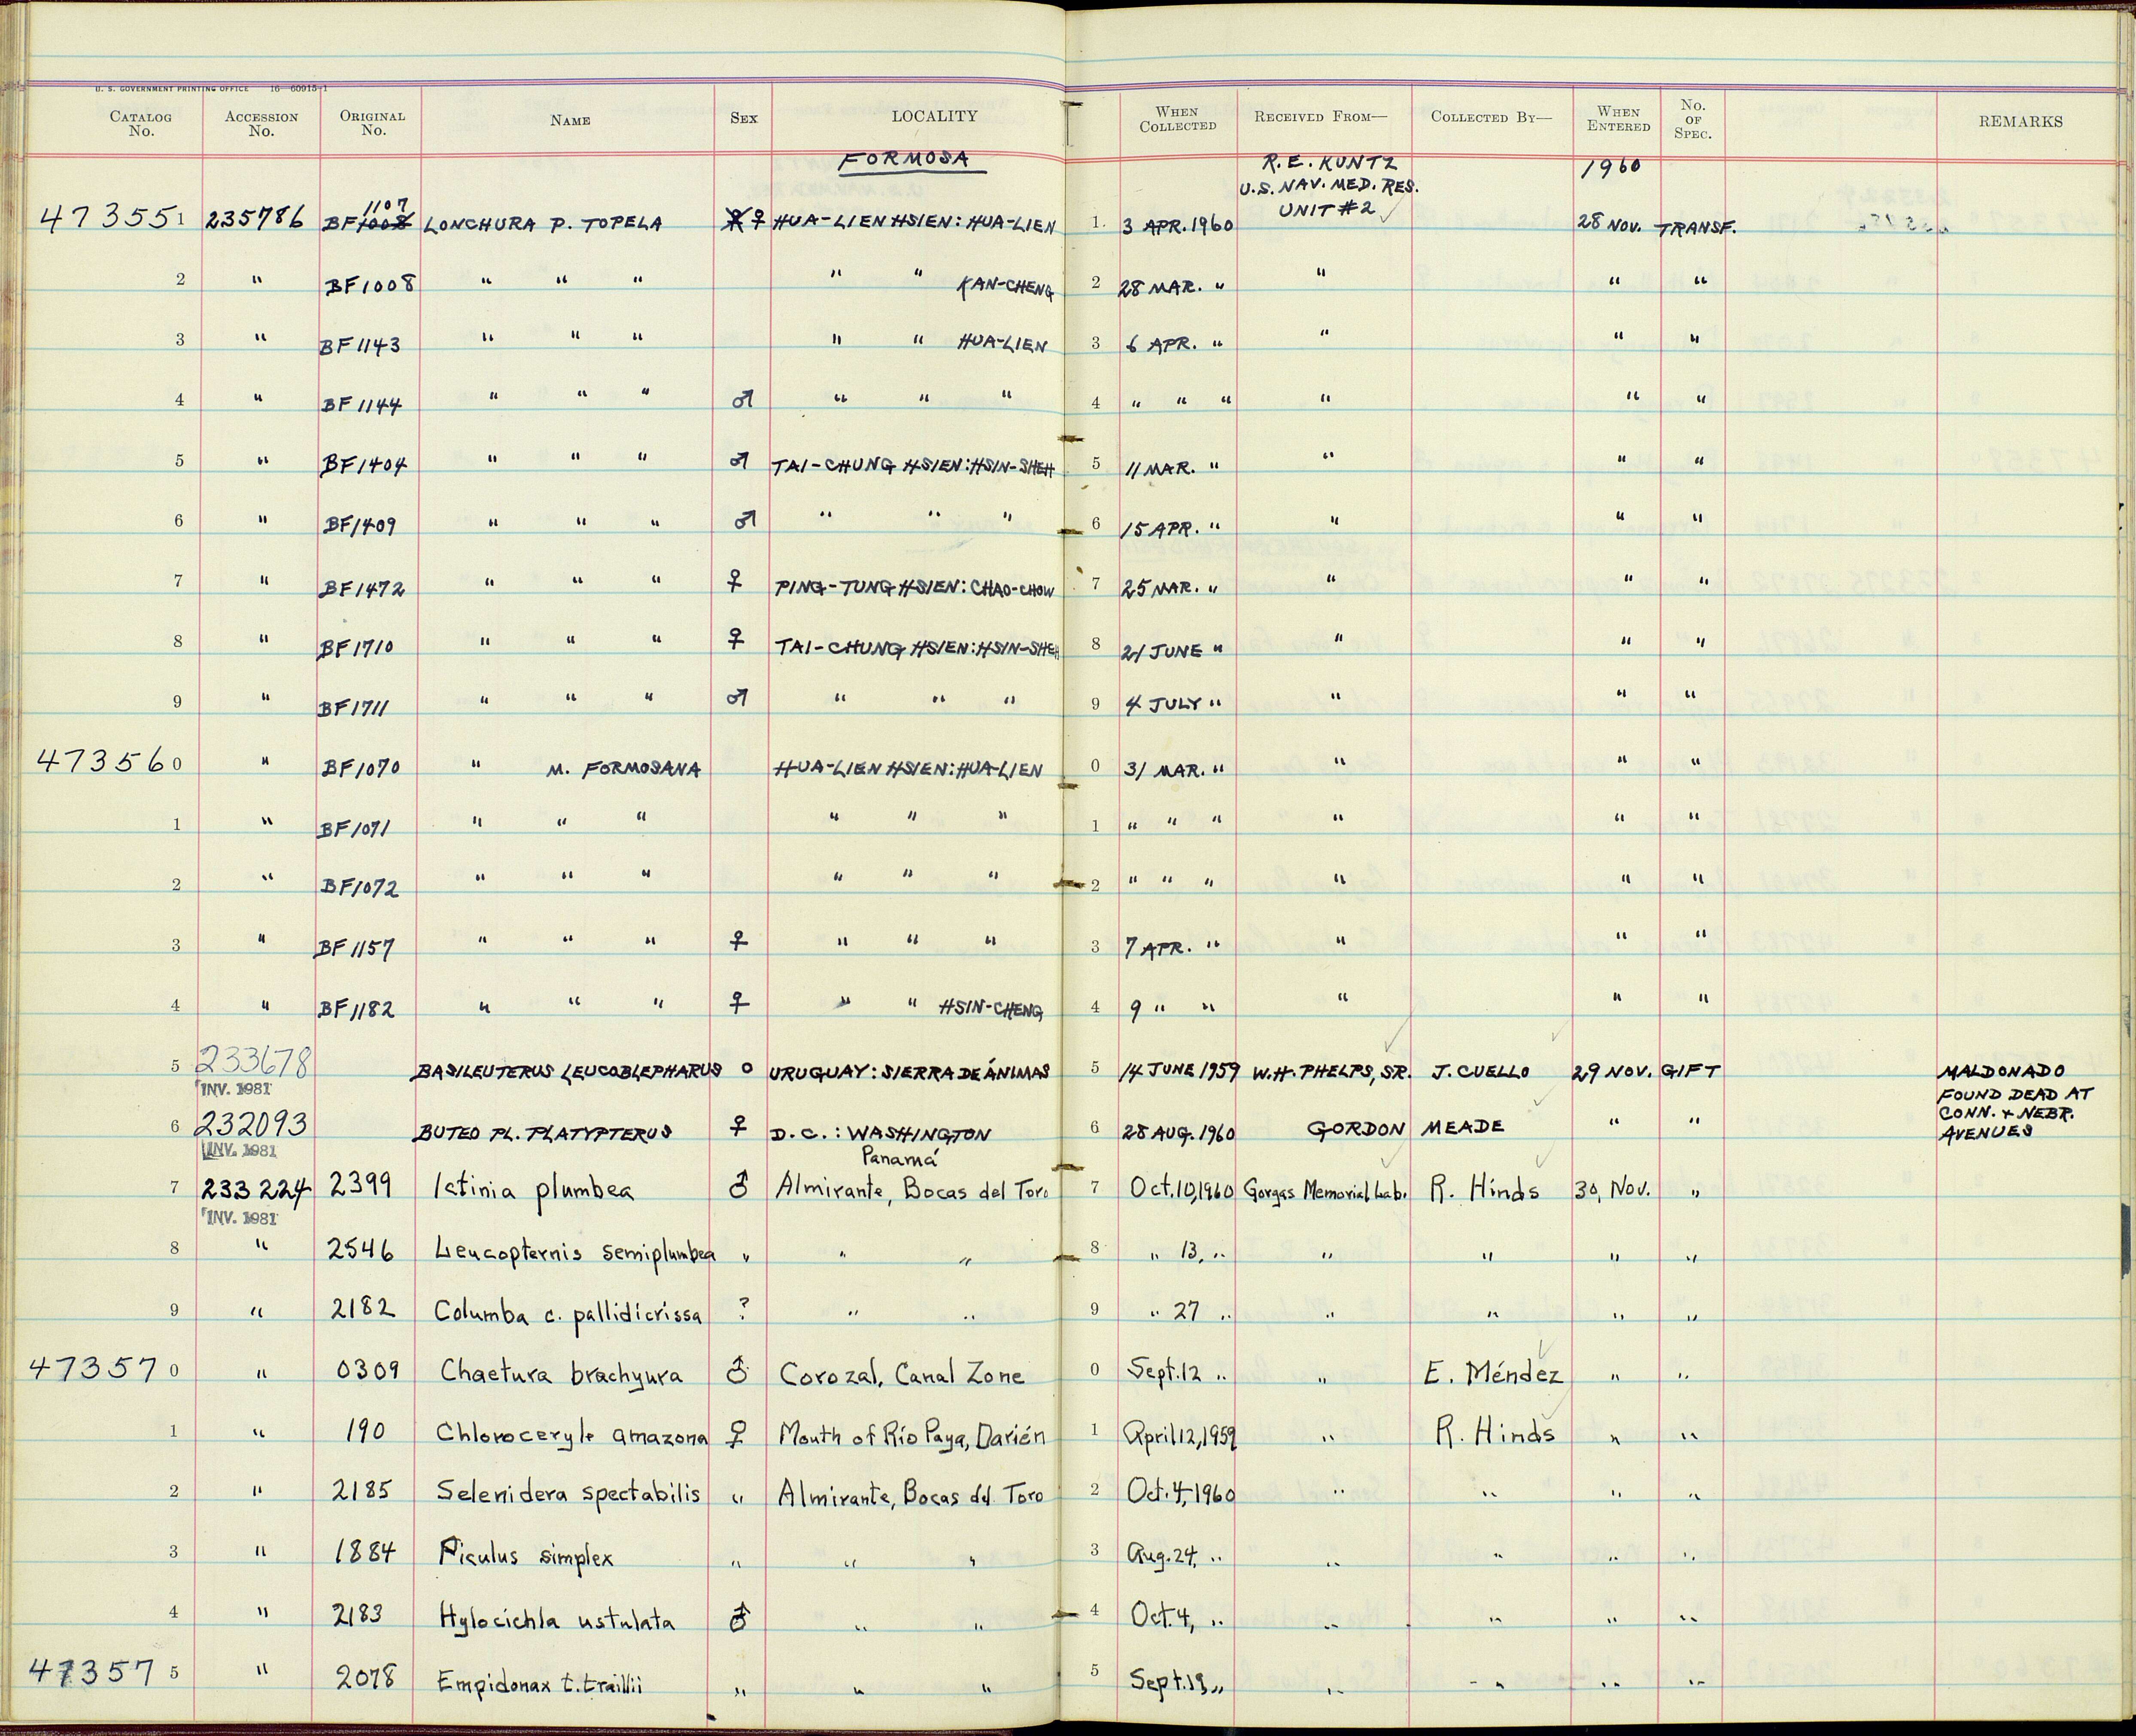 U. S. GOVERNMENT PRINTING OFFICE 16—60915-1
CATALOG No. ACCESSION No. ORIGINAL No. NAME SEX LOCALITY WHEN COLLECTED RECEIVED FROM— COLLECTED BY— WHEN ENTERED No. OF SPEC. REMARKS
FORMOSA R. E. KUNTZ 1960
U.S. NAV. MED. RES.
1107 UNIT #2 ✓
473551 235786 BF1008 LONCHURA P. TOPELA ♀ HUA-LIEN HSIEN: HUA-LIEN 1. 3 APR. 1960 28 NOV. TRANSF.
2 " BF1008 " " " " " KAN-CHENG 2 28 MAR. " " " "
3 " BF1143 " " " " " HUA-LIEN 3 6 APR. " " " "
4 " BF1144 " " " ♂ " " " 4 " " " " " "
5 " BF1404 " " " ♂ TAI-CHUNG HSIEN: HSIN-SHEH 5 11 MAR. " " " "
6 " BF1409 " " " ♂ " " " 6 15 APR. " " " "
7 " BF1472 " " " ♀ PING-TUNG HSIEN: CHAO-CHOW 7 25 MAR. " " " "
8 " BF1710 " " " ♀ TAI-CHUNG HSIEN: HSIN-SHEH 8 21 JUNE " " " "
9 " BF1711 " " " ♂ " " " 9 4 JULY " " " "
473560 " BF1070 " M. FORMOSANA HUA-LIEN HSIEN: HUA-LIEN 0 31 MAR. " " " "
1 " BF1071 " " " " " " 1 " " " " " "
2 " BF1072 " " " " " " 2 " " " " " "
3 " BF1157 " " " ♀ " " " 3 7 APR. " " " "
4 " BF1182 " " " ♀ " " HSIN-CHENG 4 9 " " " " "
5 233678 BASILEUTERUS LEUCOBLEPHARUS o URUGUAY: SIERRA DE ÁNIMAS 5 14 JUNE 1959 W.H. PHELPS, SR. J. CUELLO 29 NOV. GIFT MALDONADO
INV. 1981 FOUND DEAD AT
CONN. + NEBR.
6 232093 BUTEO PL. PLATYPTERUS ♀ D.C.: WASHINGTON 6 28 AUG. 1960 GORDON MEADE " " AVENUES
INV. 1981 Panamá
7 233224 2399 Ictinia plumbea ♂ Almirante, Bocas del Toro 7 Oct. 10, 1960 Gorgas Memorial Lab. R. Hinds 30, Nov. "
INV. 1981
8 " 2546 Leucopternis semiplumbea " " " 8 " 13, " " " " "
9 " 2182 Columba c. pallidicrissa ? " " 9 " 27 " " " " "
473570 " 0309 Chaetura brachyura ♂ Corozal, Canal Zone 0 Sept. 12 " " E. Méndez " "
1 " 190 Chloroceryle amazona ♀ Mouth of Río Paya, Darién 1 April 12, 1959 " R. Hinds " "
2 " 2185 Selenidera spectabilis " Almirante, Bocas del Toro 2 Oct. 4, 1960 " " " "
3 " 1884 Piculus simplex " " " 3 Aug. 24, " " " " "
4 " 2183 Hylocichla ustulata ♂ " " 4 Oct. 4, " " " " "
473575 " 2078 Empidonax t. traillii " " " 5 Sept. 19 " " " " "